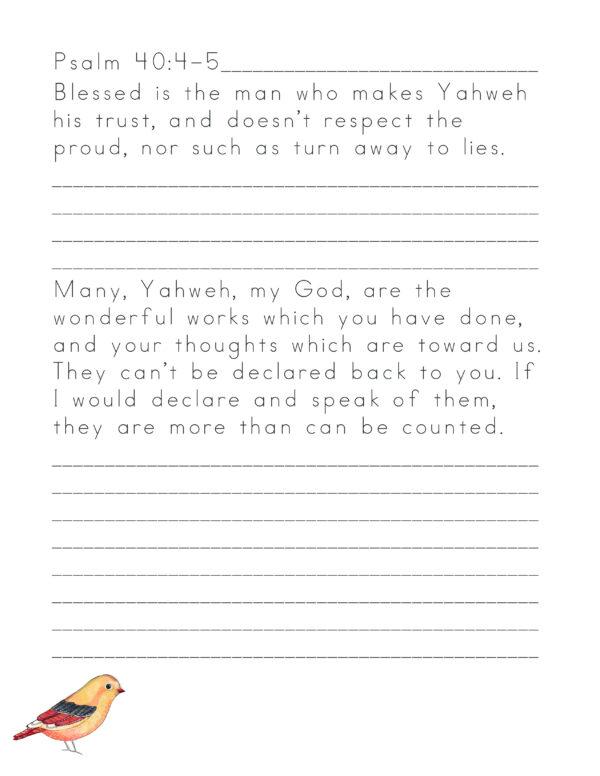 Psalm 40:4-5______________________________
Blessed is the man who makes Yahweh
his trust, and doesn't respect the
proud, nor such as turn away to lies.
Many, Yahweh, my God, are the
wonderful works which you have done,
and your thoughts which are toward us.
They can't be declared back to you. If
I would declare and speak of them,
they are more than can be counted.